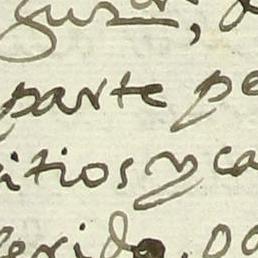 gusar,
parte pe
itios y ca
ferido, oo